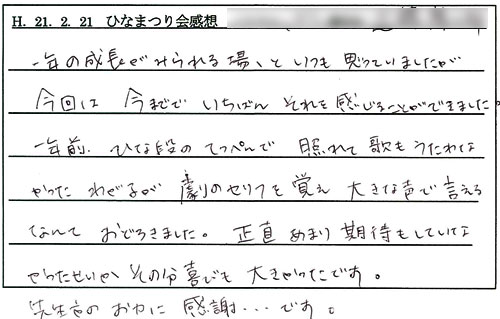 H. 21. 2. 21 ひなまつり会感想
一年の成長がみられる場、といつも思っていましたが
今回は 今までで いちばん それを感じることができました。
一年前、ひな段の てっぺんで 照れて 歌も うたわな
かった わが子が 劇のセリフを 覚え 大きな声で 言える
なんて おどろきました。 正直 あまり 期待もしていな
かったせいか その分 喜びも 大きかったです。
先生方の おかげに 感謝・・・です。